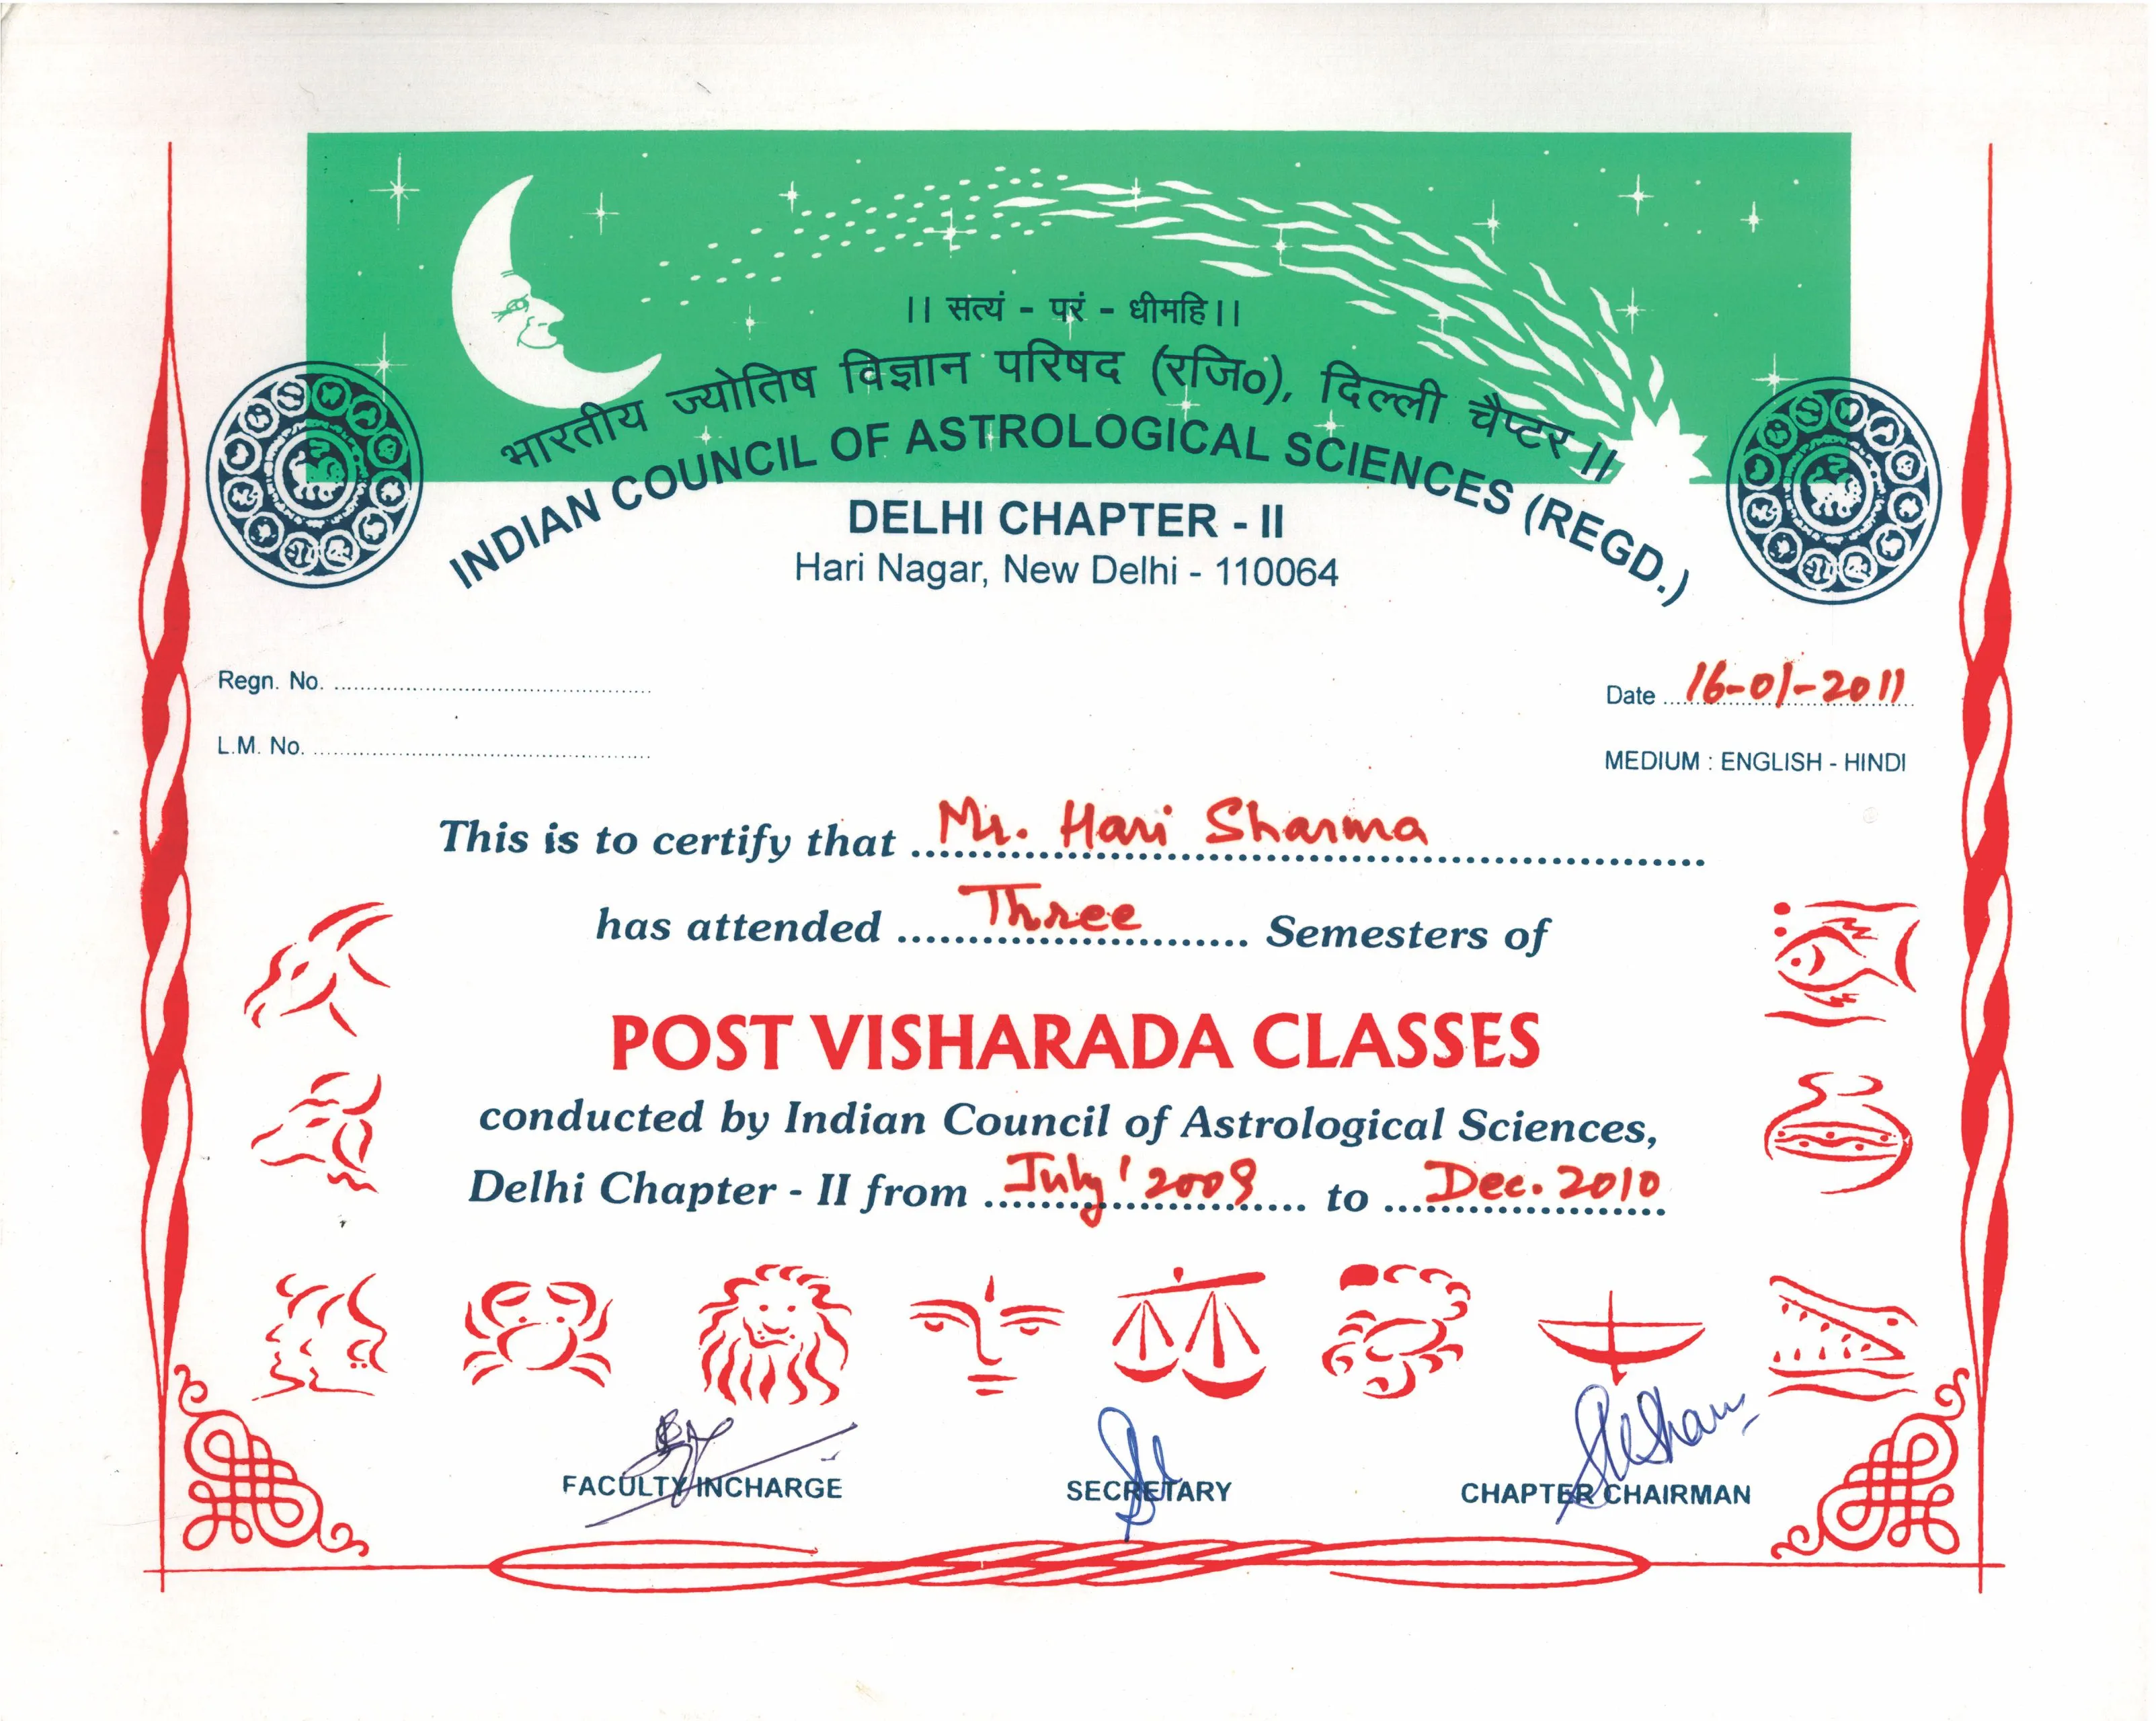 ।। सत्यं - परं - धीमहि।।
भारतीय ज्योतिष विज्ञान परिषद (रजि०), दिल्ली चैप्टर II
INDIAN COUNCIL OF ASTROLOGICAL SCIENCES (REGD.)
DELHI CHAPTER - II
Hari Nagar, New Delhi - 110064
Regn. No. ..........
Date 16-01-2011
L.M. No. ..........
MEDIUM : ENGLISH - HINDI
This is to certify that Mr. Hari Sharma
has attended Three Semesters of
POST VISHARADA CLASSES
conducted by Indian Council of Astrological Sciences,
Delhi Chapter - II from July' 2009 to Dec. 2010
FACULTY INCHARGE SECRETARY CHAPTER CHAIRMAN